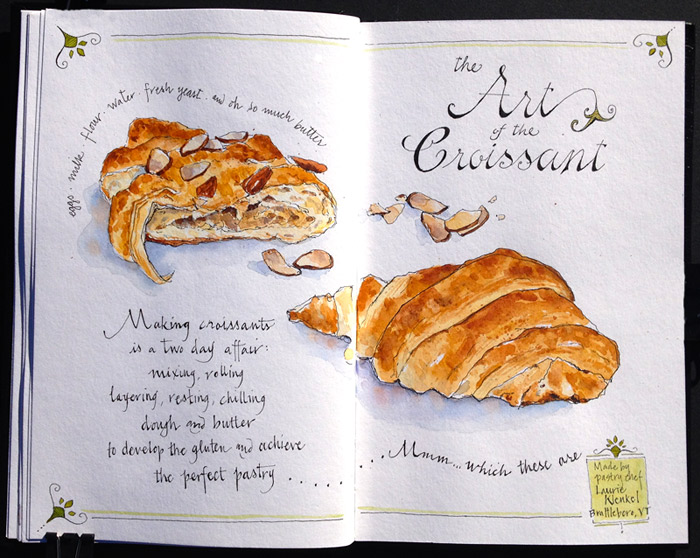 eggs. milk. flour. water. fresh yeast. and oh so much butter
Making croissants
is a two day affair:
mixing, rolling
layering, resting, chilling
dough and butter
to develop the gluten and achieve
the perfect pastry . . . . . .
the
Art
of the
Croissant
. . . Mmm... which these are
Made by
pastry chef
Laurie
Brattleboro, VT